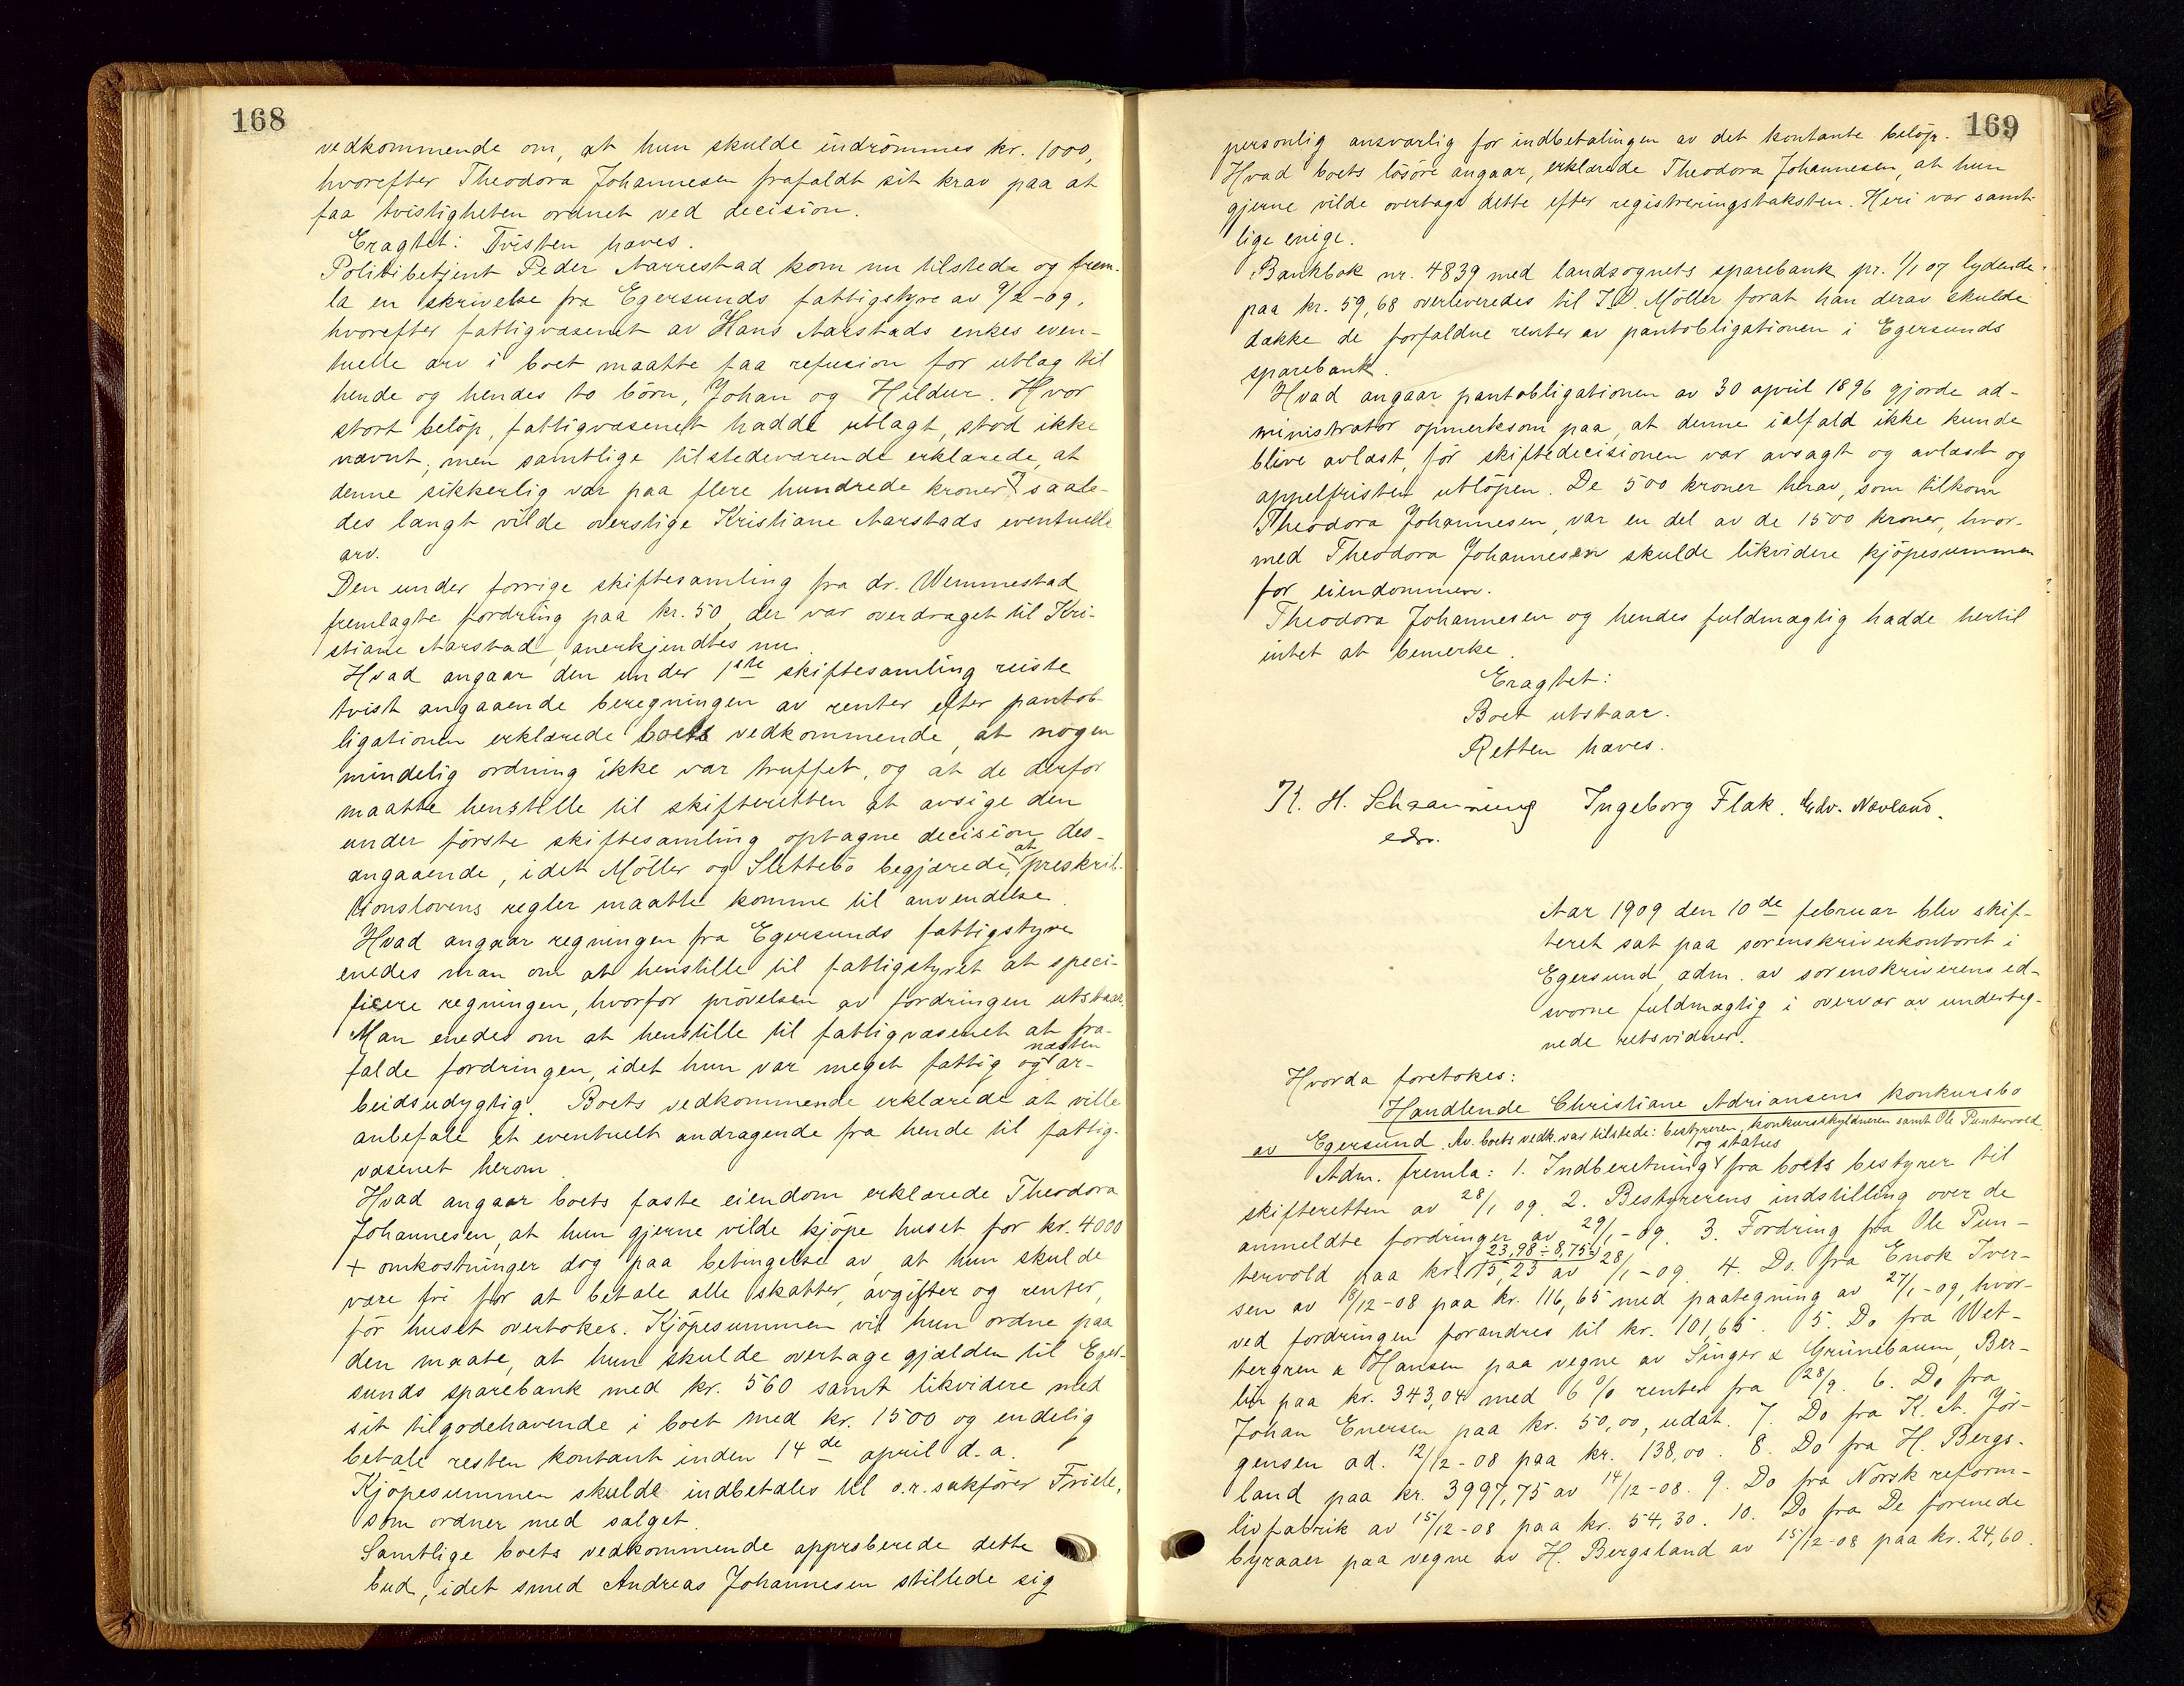 168
vedkommende om, at hun skulde indrömmes kr. 1000,
hvorefter Theodora Johannesen frafaldt sit krav paa at
faa tvistigheten ordnet ved decision.
Eragtet: Tvisten hæves.
Politibetjent Peder Aarrestad kom nu tilstede og frem-
la en skrivelse fra Egersunds fattigstyre av 9/2-09,
hvorefter fattigvæsenet av Hans Aarstads enkes even-
tuelle arv i boet maatte faa refusion for utlæg til
hende og hendes to börn, Johan og Hildur. Hvor
stort belöp, fattigvæsenet hadde utlagt, stod ikke
nævnt, men samtlige tilstedeværende erklærede, at
denne sikkerlig var paa flere hundrede kroner, saale-
des langt vilde overstige Kristiane Aarstads eventuelle
arv.
Den under forrige skiftesamling fra dr. Wemmestad
fremlagte fordring paa kr. 50, der var overdraget til Kri-
stiane Aarstad, anerkjendtes nu.
Hvad angaar den under 1ste skiftesamling reiste
tvist angaaende beregningen av renter efter pantob-
ligationen erklærede boets vedkommende, at nogen
mindelig ordning ikke var truffet, og at de derfor
maatte henstille til skifteretten at avsige den
under förste skiftesamling optagne decision des-
angaaende, idet Möller og Slettebö begjærede, at preskrip-
tionslovens regler maatte komme til anvendelse.
Hvad angaar regningen fra Egersunds fattigstyre
enedes man om at henstille til fattigstyret at speci-
ficere regningen, hvorfor prövelsen av fordringen utstaar.
Man enedes om at henstille til fattigvæsenet at fra-
falde fordringen, idet hun var meget fattig og næsten ar-
beidsudygtig. Boets vedkommende erklærede at ville
anbefale et eventuelt andragende fra hende til fattig-
væsenet herom.
Hvad angaar boets faste eiendom erklærede Theodora
Johannesen, at hun gjerne vilde kjöpe huset for kr. 4000
+ omkostninger dog paa betingelse av, at hun skulde
være fri for at betale alle skatter, avgifter og renter,
för huset overtokes. Kjöpesummen vil hun ordne paa
den maate, at hun skulde overtage gjælden til Eger-
sunds sparebank med kr. 560 samt likvidere med
sit tilgodehavende i boet med kr. 1500 og endelig
betale resten kontant inden 14de april d.a.
Kjöpesummen skulde indbetales til o.r. sakförer Friele,
som ordner med salget.
Samtlige boets vedkommende approberede dette
bud, idet smed Andreas Johannesen stillede sig
169
personlig ansvarlig for indbetalingen av det kontante belöp.
Hvad boets lösöre angaar, erklærede Theodora Johannesen, at hun
gjerne vilde overtage dette efter registreringstaksten. Heri var samt-
lige enige.
Bankbok nr. 4839 med landsognets sparebank pr. 1/1 07 lydende
paa kr. 59,68 overleveredes til Möller forat han derav skulde
dække de forfaldne renter av pantobligationen i Egersunds
sparebank.
Hvad angaar pantobligationen av 30 april 1896 gjorde ad-
ministrator opmerksom paa, at denne ialfald ikke kunde
blive avlæst, för skiftedecisionen var avsagt og avlæst og
appelfristen utlöpen. De 500 kroner herav, som tilkom
Theodora Johannesen, var en del av de 1500 kroner, hvor-
med Theodora Johannesen skulde likvidere kjöpesummen
for eiendommen.
Theodora Johannesen og hendes fuldmægtig hadde hertil
intet at bemerke.
Eragtet:
Boet utstaar.
Retten hæves.
K. H. Schaanning Ingeborg Flak. Edv. Nævland.
edsv.
Aar 1909 den 10de februar blev skif-
teret sat paa sorenskriverkontoret i
Egersund, adm. av sorenskriverens ed-
svorne fuldmægtig i overvær av underteg-
nede retsvidner.
Hvorda foretokes:
Handlende Christiane Adriansens konkursbo
av Egersund. Av boets vedk. var tilstede: bestyreren, konkursskyldneren samt Ole Puntervold
Adm. fremla: 1. Indberetning og status fra boets bestyrer til
skifteretten av 28/1 09. 2. Bestyrerens indstilling over de
anmeldte fordringer av 29/1-09. 3. Fordring fra Ole Pun-
tervold paa kr. 23,98 ÷ 8,75 = 15,23 av 28/1-09. 4. Do. fra Enok Iver-
sen av 18/12-08 paa kr. 116,65 med paategning av 27/1-09, hvor-
ved fordringen forandres til kr. 101,65. 5. Do fra Wet-
tergren & Hansen paa vegne av Singer & Grünebaum, Ber-
lin paa kr. 343,04 med 6 % renter fra 28/9. 6. Do fra
Johan Enersen paa kr. 50,00, udat. 7. Do fra K. A. Jör-
gensen ad. 12/12-08 paa kr. 138,00. 8. Do fra H. Bergs-
land paa kr. 3997,75 av 14/12-08. 9. Do fra Norsk reform-
livfabrik av 15/12-08 paa kr. 54,30. 10. Do fra De forenede
byraaer paa vegne av H. Bergsland av 15/12-08 paa kr. 24,60.